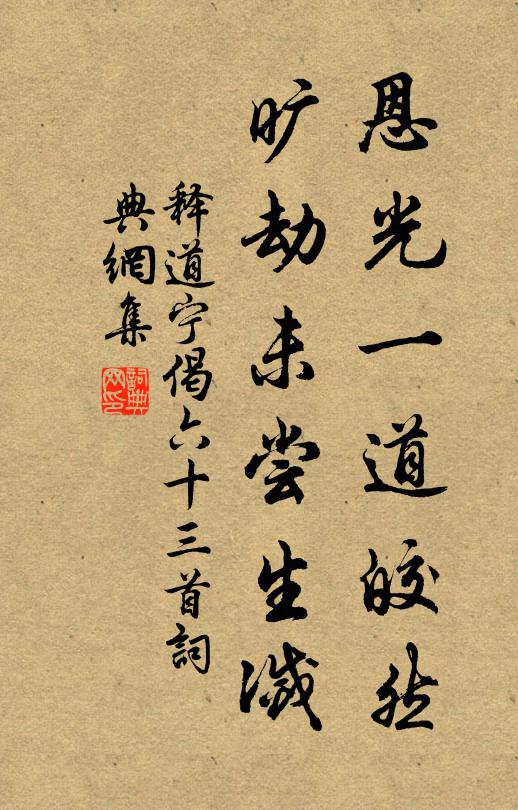 恩光一道皎然
旷劫未尝生滅
释道宁偈六十三首詞
典網集
詞典网印